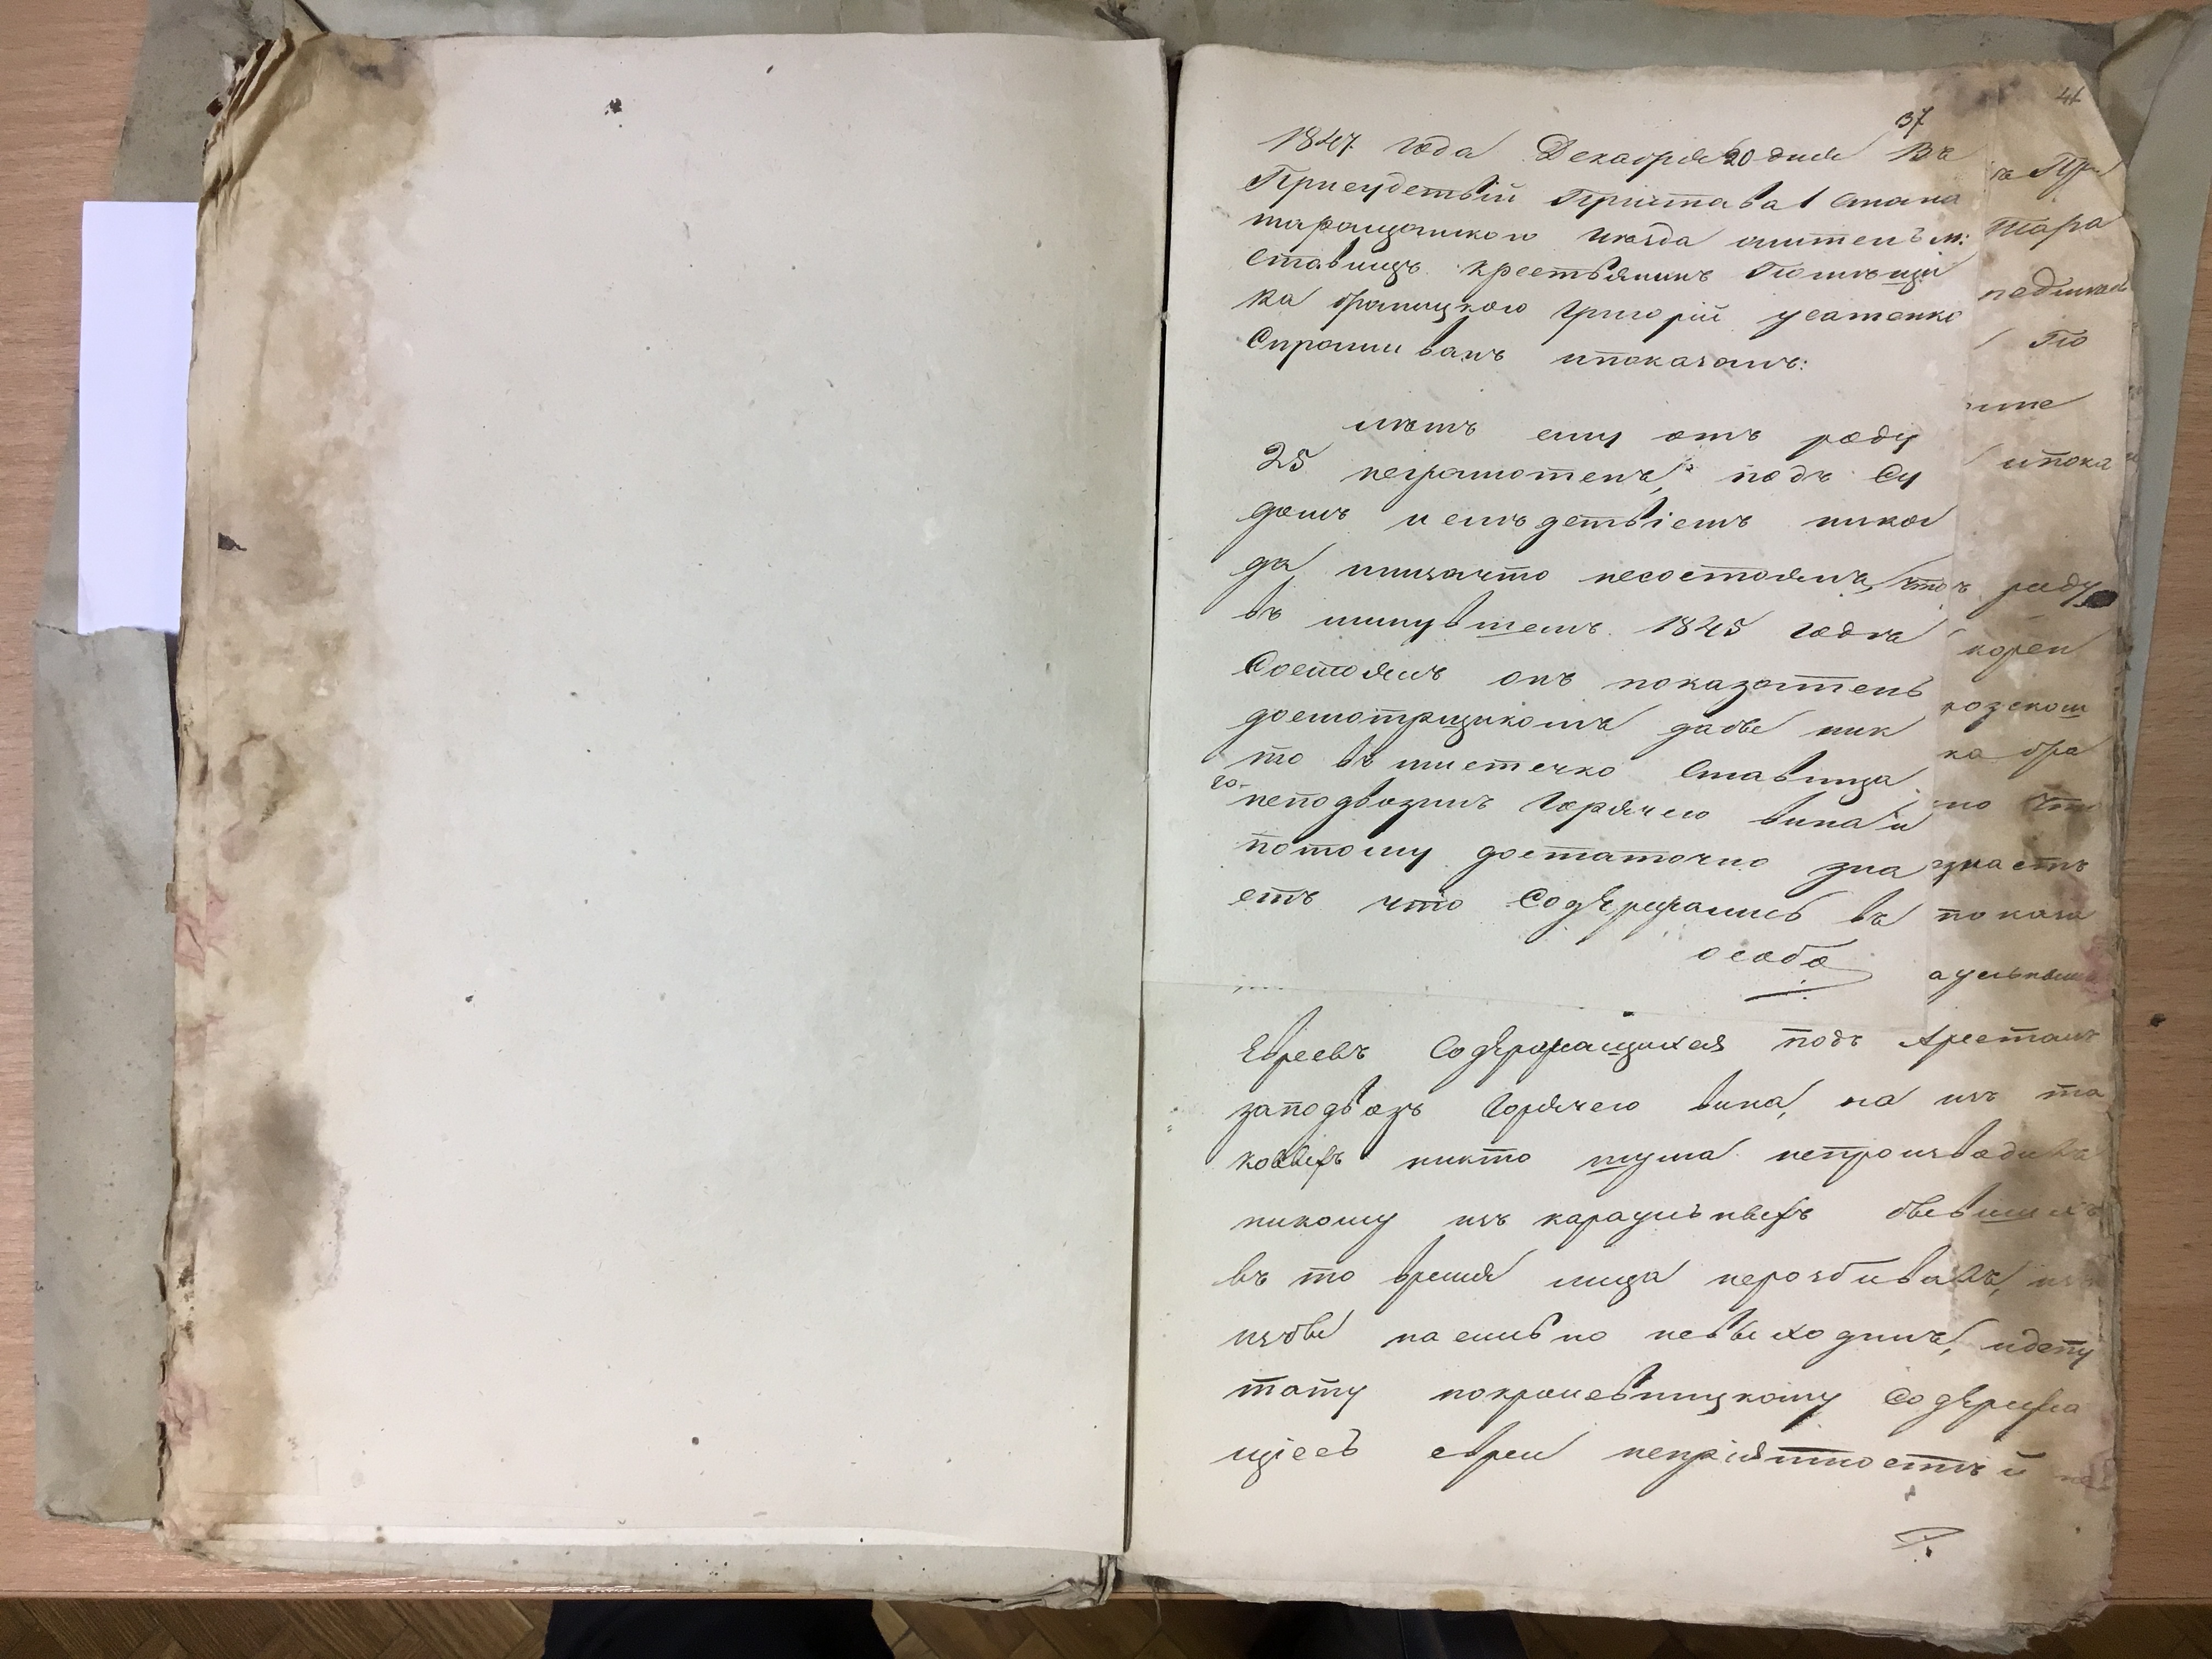 41
37
1847 года Декабря 20 дня Въ
Присудствій Пристава 1 Стана
таращанского уѣзда житель м:
Ставищъ крестьянинъ Помѣщи
ка браницкого Григорій усатенко
Спрашиванъ ипоказалъ:
лѣтъ ему отъ роду
25 неграмотенъ, подъ Су
домъ и слѣдствіемъ никог
да нинзачто несостоялъ, что
въ минувшемъ 1845 годѣ
Состоялъ онъ показатель
досмотрщикомъ дабы ник
то въ мистечко Ставища
го-
неподвозилъ Горячего вина и
потому достаточно зна
етъ что Содержались въ
особо
Евреевъ Содержащихся подъ Арестомъ
заподвозъ Горячего вина, на изъ та
ковыхъ никто шума непроизводилъ
никому изъ караульныхъ бывшихъ
въ то время лица неразбивалъ,
избы насильно невыходилъ, идепу
тату покрасовницкому Содержа
щіесь евреи непріятностѣй
Тара
По
ипока
роду
корен
ка бра
но что
знаетъ
показа